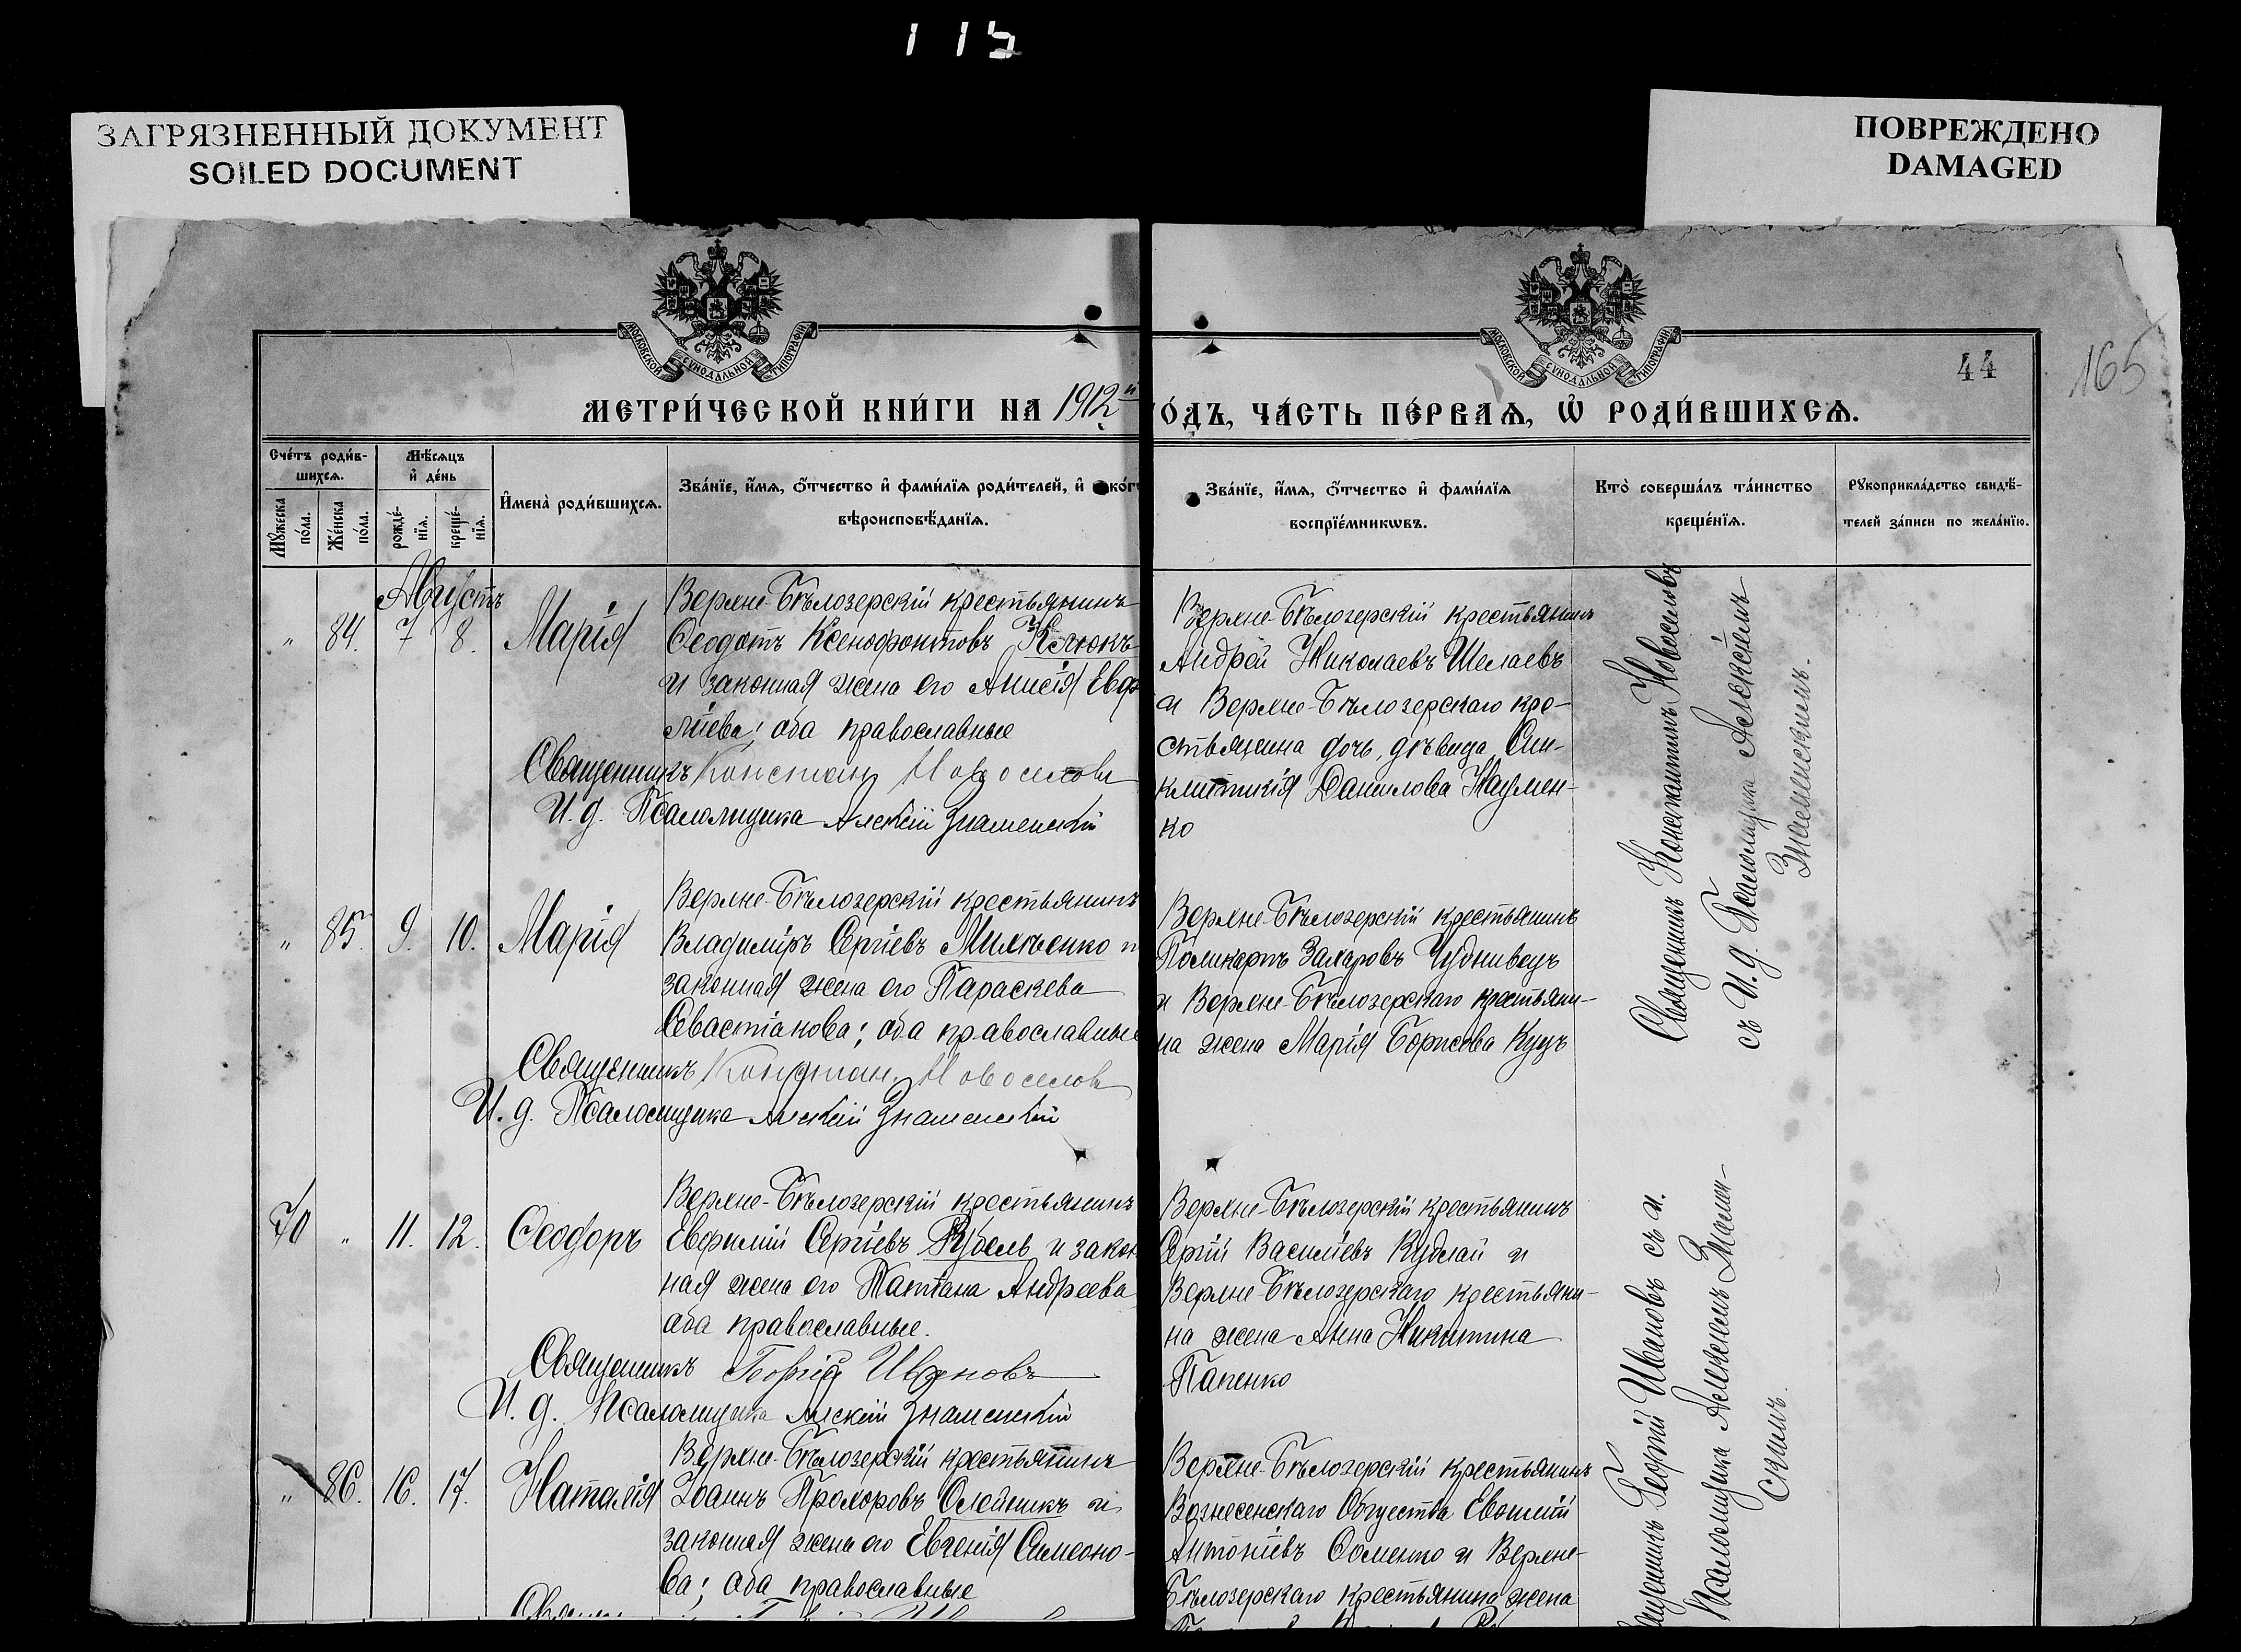 113
ЗАГРЯЗНЕННЫЙ ДОКУМЕНТ
SOILED DOCUMENT
ПОВРЕЖДЕНО
DAMAGED
МОСКОВСКОЙ СУНОДАЛЬНОЙ ТИПОГРАФІИ
МОСКОВСКОЙ СУНОДАЛЬНОЙ ТИПОГРАФІИ
44
165
МЕТРИ́ЧЕСКОЙ КНИ́ГИ НА 1912й
О́ДЪ, ЧА́СТЬ ПЕ́РВАѦ, Ѡ҆ РОДИ́ВШИХСѦ.
Сче́тъ роди́в-
шихсѧ.
Мꙋ́жеска по́ла.
Же́нска по́ла.
Мѣ́сѧцъ
и҆ де́нь
рожде́-
нїѧ.
креще́-
нїѧ.
И҆мена̀ роди́вшихсѧ.
Зва́нїе, и҆́мѧ, ѻ҆́тчество и҆ фами́лїѧ роди́телей, и҆ ко́г
вѣроисповѣ́данїѧ.
Зва́нїе, и҆́мѧ, ѻ҆́тчество и҆ фами́лїѧ
воспрїе́мникѡвъ.
Кто̀ соверша́лъ та́инство
креще́нїѧ.
Рꙋкоприкла́дство свидѣ́-
телей за́писи по жела́нїю.
Августъ
" 84. 7 8. Марія
Верхне-Бѣлозерскій крестьянинъ
Ѳеодотъ Ксенофонтовъ Ключокъ
и законная жена его Анисія Евф
иіева; оба православные
Священникъ Констан Новоселовъ
И. д. Псаломщика Алексій Знаменскій
Верхне-Бѣлозерскій крестьянинъ
Андрей Николаевъ Шелаевъ
и Верхне-Бѣлозерскаго кре-
стьянина дочь, дѣвица Син-
клитикія Данилова Наумен-
ко
Священникъ Константинъ Новоселовъ
съ И. д. Псаломщика Алексѣемъ
Знаменскимъ.
" 85. 9. 10. Марія
Верхне-Бѣлозерскій крестьянинъ
Владиміръ Сергіевъ Михѣенко и
законная жена его Параскева
Севастіанова; оба православные
Священникъ Констан. Новоселовъ
И. д. Псаломщика Алексій Знаменскій
Верхне-Бѣлозерскій крестьянинъ
Поликарпъ Захаровъ Чуднивецъ
и Верхне-Бѣлозерскаго крестьяни-
на жена Марія Борисова Куцъ
70 " 11. 12. Ѳеодоръ
Верхне-Бѣлозерскій крестьянинъ
Евфимій Сергіевъ Рубель и закон
ная жена его Татіана Андреева
оба православные.
Священникъ Георгій Ивановъ
И. д. Псаломщика Алексій Знаменскій
Верхне-Бѣлозерскій крестьянинъ
Сергій Василіевъ Кудлай и
Верхне-Бѣлозерскаго крестьяни-
на жена Анна Никитина
Папенко
Священникъ Георгій Ивановъ съ и.
Псаломщика Алексѣемъ Знамен-
скимъ.
" 86. 16. 17. Наталія
Верхне-Бѣлозерскій крестьянинъ
Іоаннъ Прохоровъ Олейникъ и
законная жена его Евгенія Симеоно-
ва; оба православные
Верхне-Бѣлозерскій крестьянинъ
Вознесенскаго Общества Евѳимій
Антоніевъ и Верхне-
Бѣлозерскаго крестьянина жена